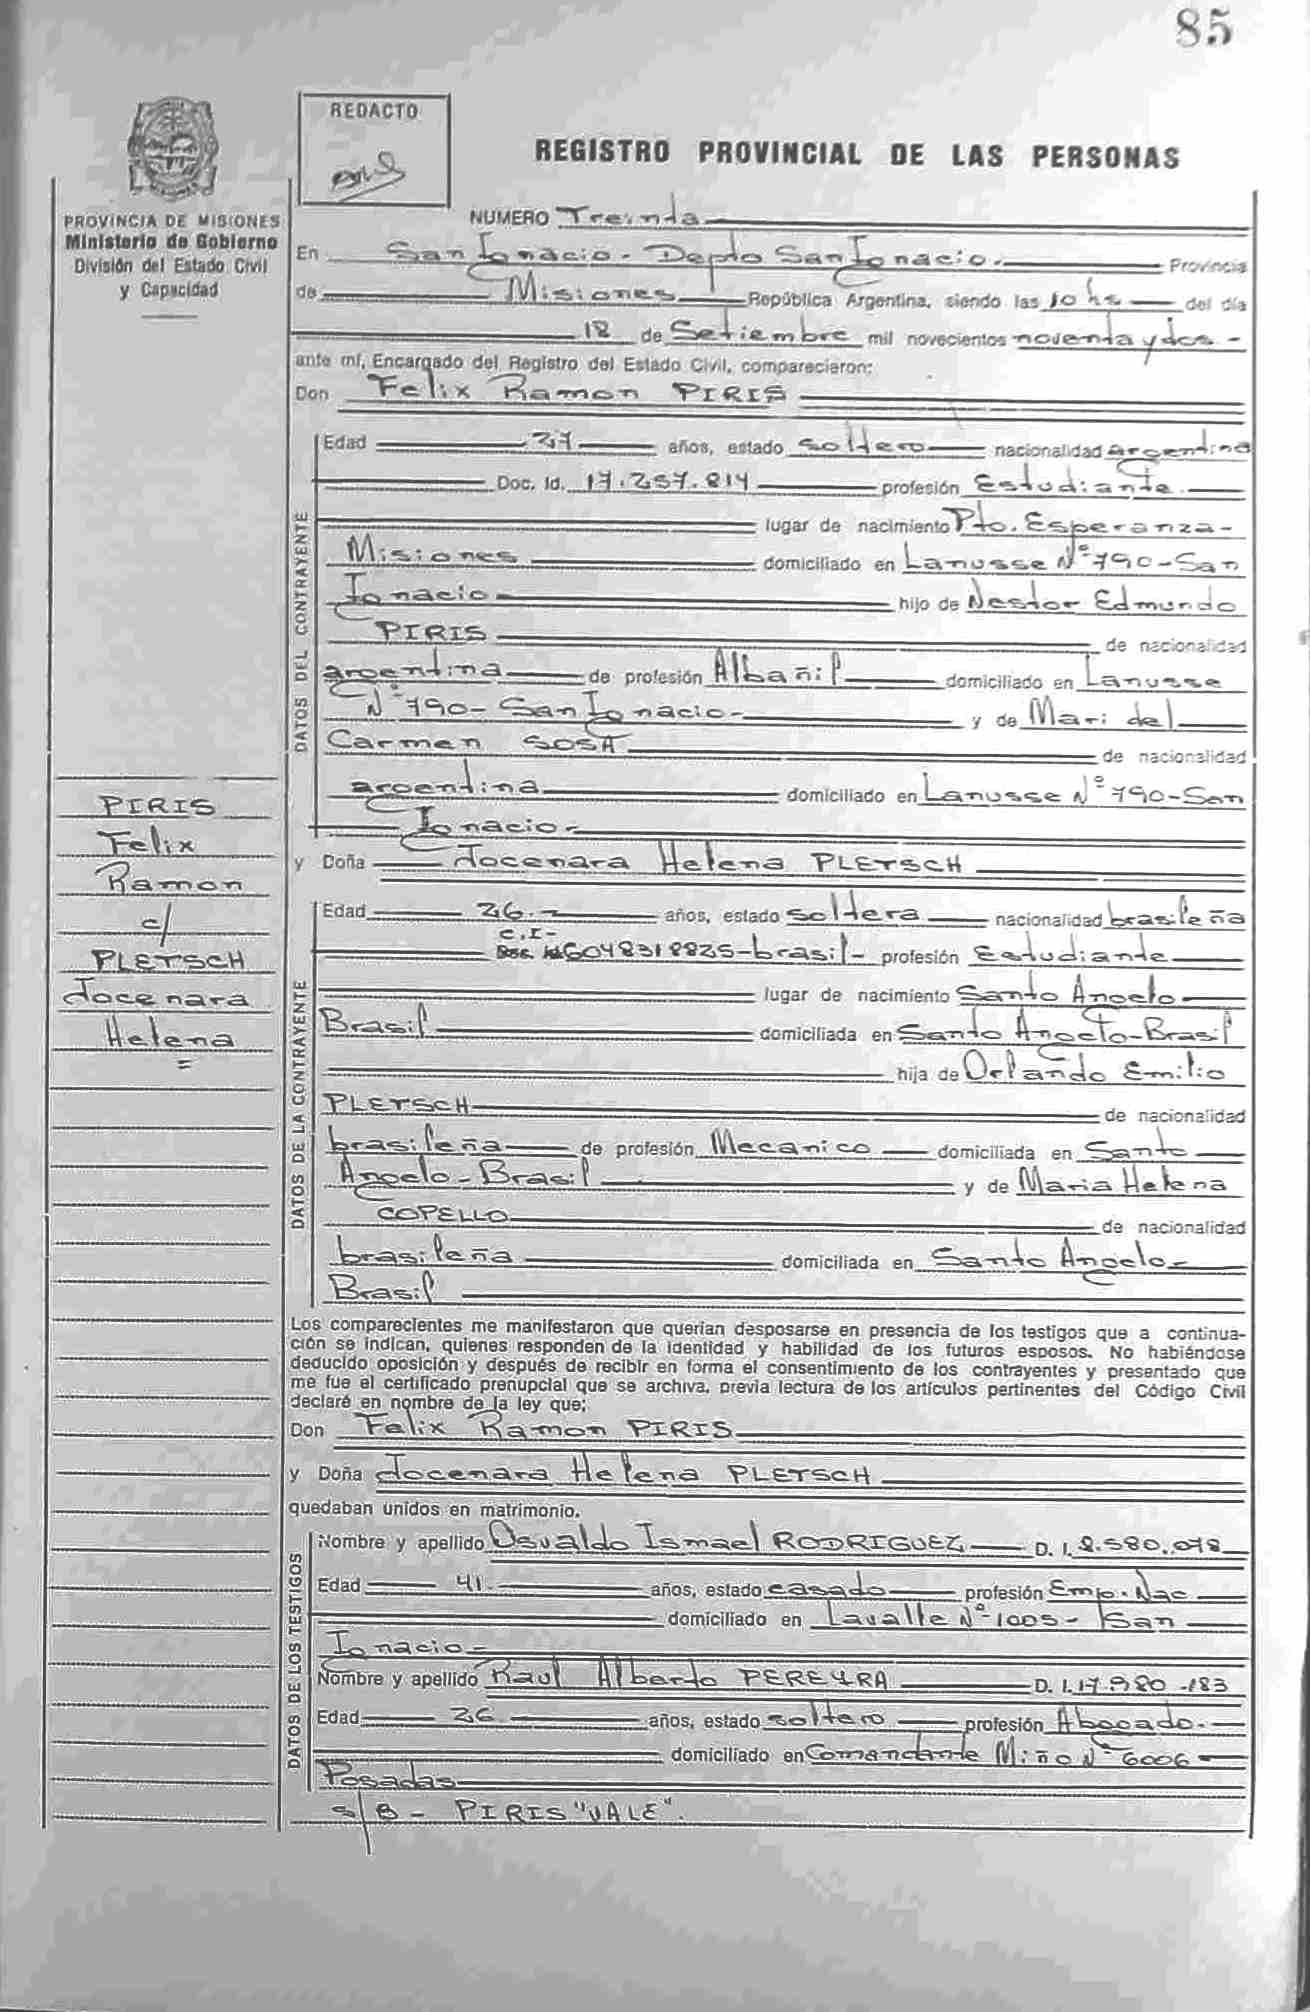 85
REDACTO
REGISTRO PROVINCIAL DE LAS PERSONAS
PROVINCIA DE MISIONES
Ministerio de Gobierno
División del Estado Civil
y Capacidad
NUMERO Treinta
En San Ignacio - Depto San Ignacio. Provincia
de Misiones República Argentina, siendo las 10 hs del día
18 de Setiembre mil novecientos noventa y dos -
ante mí, Encargado del Registro del Estado Civil, comparecieron:
Don Felix Ramon PIRIS
DATOS DEL CONTRAYENTE
Edad 27 años, estado soltero nacionalidad argentina
Doc. Id. 17.257.814 profesión Estudiante.
lugar de nacimiento Pto. Esperanza -
Misiones domiciliado en Lanusse Nº 790 - San
Ignacio - hijo de Nestor Edmundo
PIRIS de nacionalidad
argentina de profesión Albañil domiciliado en Lanusse
Nº 790 - San Ignacio - y de Mari del
Carmen SOSA de nacionalidad
argentina domiciliado en Lanusse Nº 790 - San
Ignacio -
y Doña Jocenara Helena PLETSCH
PIRIS
Felix
Ramon
c/
PLETSCH
Jocenara
Helena
=
DATOS DE LA CONTRAYENTE
Edad 26 - años, estado soltera nacionalidad brasileña
C.I -
Doc. Id. 6048318825 - brasil - profesión Estudiante
lugar de nacimiento Santo Angelo
Brasil domiciliada en Santo Angelo - Brasil
hija de Orlando Emilio
PLETSCH de nacionalidad
brasileña de profesión Mecanico domiciliada en Santo
Angelo - Brasil y de Maria Helena
COPELLO de nacionalidad
brasileña domiciliada en Santo Angelo -
Brasil
Los comparecientes me manifestaron que querían desposarse en presencia de los testigos que a continua-
ción se indican, quienes responden de la identidad y habilidad de los futuros esposos. No habiéndose
deducido oposición y después de recibir en forma el consentimiento de los contrayentes y presentado que
me fue el certificado prenupcial que se archiva, previa lectura de los artículos pertinentes del Código Civil
declaré en nombre de la ley que:
Don Felix Ramon PIRIS
y Doña Jocenara Helena PLETSCH
quedaban unidos en matrimonio.
DATOS DE LOS TESTIGOS
Nombre y apellido Osvaldo Ismael RODRIGUEZ D. I. 8.580.078
Edad 41 - años, estado casado profesión Emp. Nac
domiciliado en Lavalle Nº 1005 - San
Ignacio -
Nombre y apellido Raul Alberto PEREYRA D. I. 17.980.183
Edad 26 años, estado soltero profesión Abogado. -
domiciliado en Comandante Miño Nº 6006
Posadas
s/B - PIRIS "VALE".